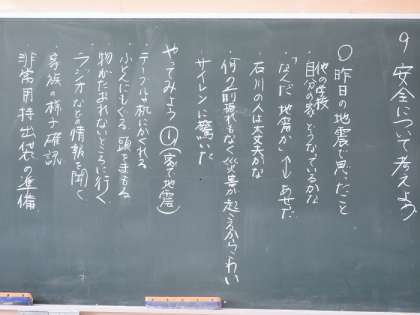 9 安全について考えよう
○昨日の地震で思ったこと
他の学校
・自分の家どうなっているかな
・「なんだ、地震か」↑↓あせだ
・石川の人は大丈夫かな
・何の前ぶれもなく災害が起こるからこわい
・サイレンに驚いた
やってみよう①(家で地震)
・テーブルや机にかくれる
・ふとんにもぐる 頭をまもる
・物がたおれないところに行く
・ラジオなどの情報を聞く
・家族の様子確認
非常用持出袋の準備